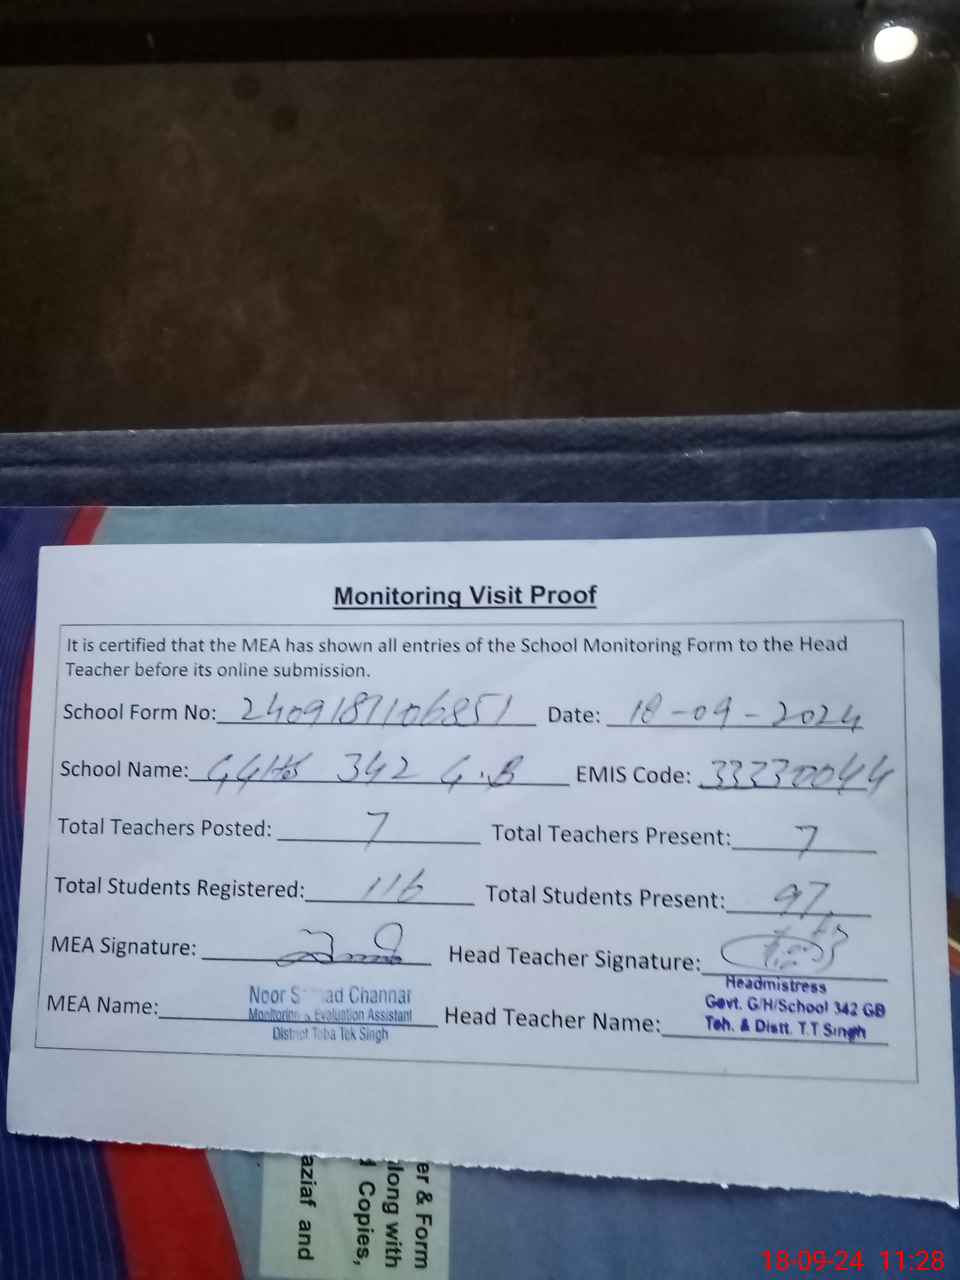 Monitoring Visit Proof
It is certified that the MEA has shown all entries of the School Monitoring Form to the Head
Teacher before its online submission.
School Form No: 2409187106851 Date: 18-09-2024
School Name: GGHS 342 G.B EMIS Code: 33330044
Total Teachers Posted: 7 Total Teachers Present: 7
Total Students Registered: 116 Total Students Present: 97
MEA Signature: Head Teacher Signature:
MEA Name: Noor Channar
Monitoring & Evaluation Assistant
District Toba Tek Singh
Head Teacher Name: Headmistress
Govt. G/H/School 342 GB
Teh. & Distt. T.T Singh
er & Form
along with
Copies,
aziaf and
18-09-24 11:28